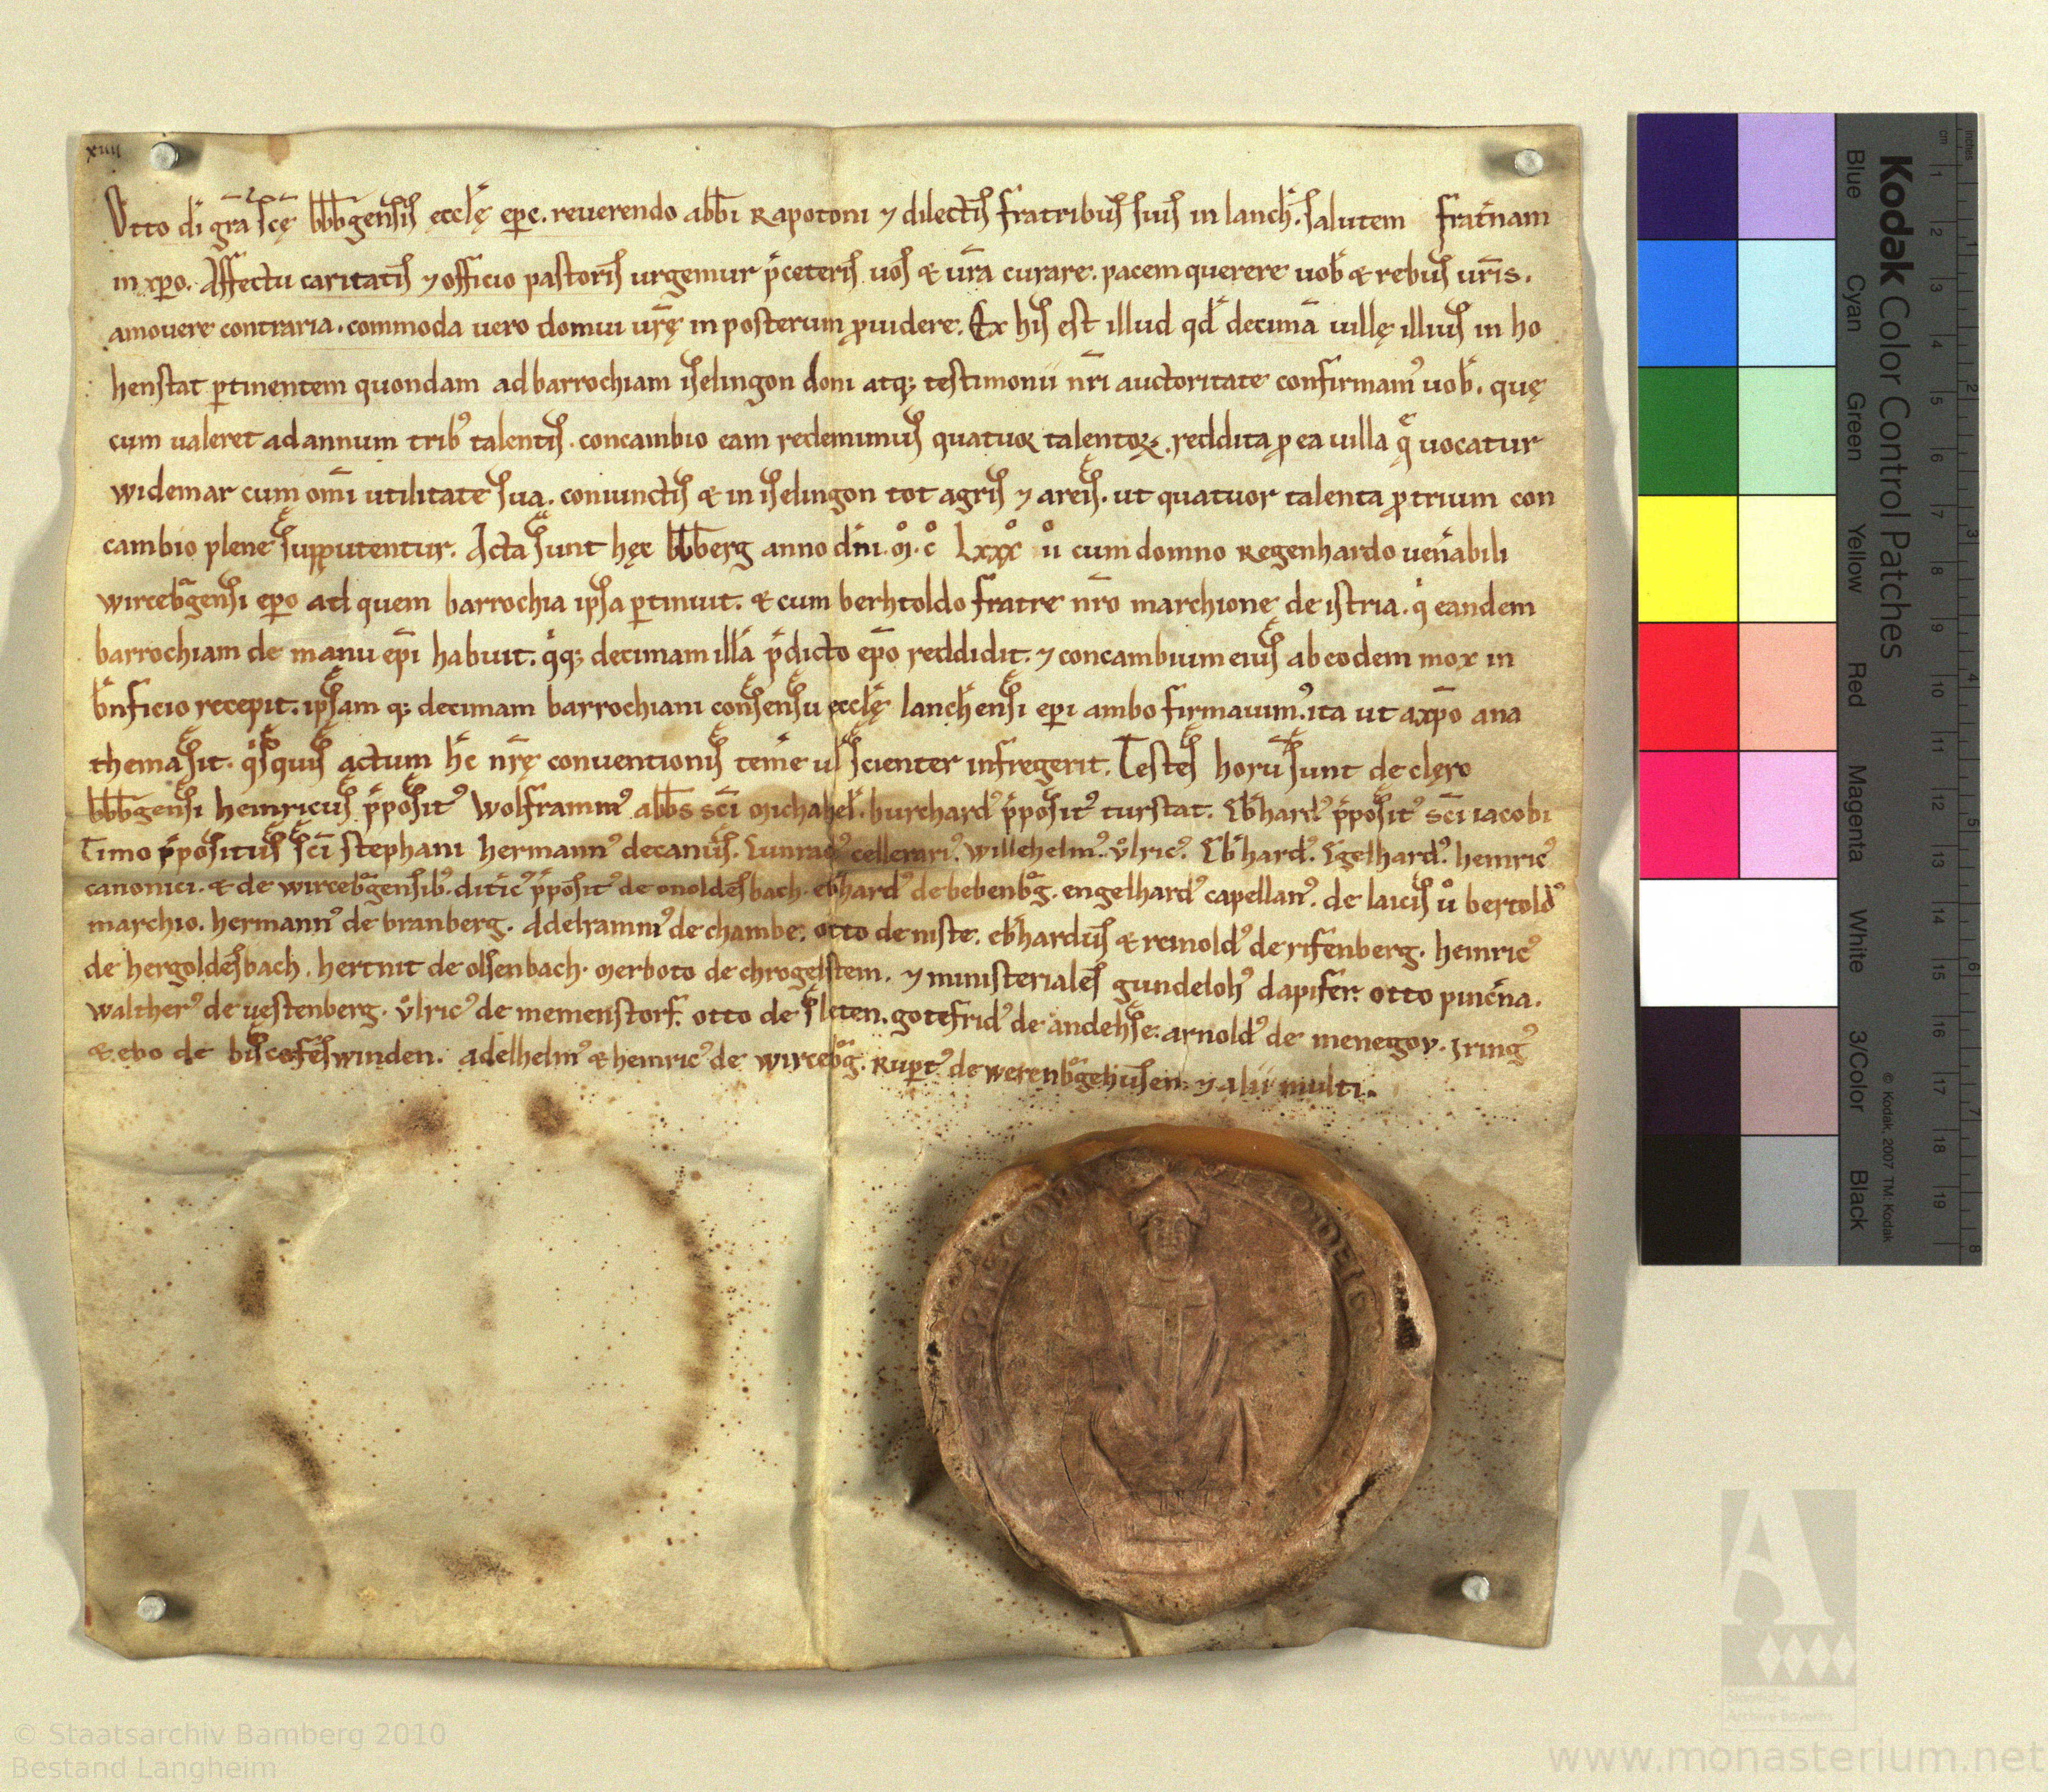 xiiii
Otto di gra sce bbbgensis eccle epc. reuerendo abbi Rapotoni ⁊ dilectis fratribus suis in lanch. salutem fratnam
in xpo. Affectu caritatis ⁊ officio pastoris urgemur pceteris uos & ura curare. pacem querere uob & rebus uris.
amouere contraria. commoda uero domui urę in posterum puidere. Ex his est illud qd decimā uillę illius in ho
henstat ptinentem quondam ad barrochiam iselingon doni atq; testimonii nri auctoritate confirmam' uob. quę
cum ualeret ad annum trib' talentis. concambio eam redemimus quatuor talentoꝝ. reddita p ea uilla q uocatur
widemar cum omi utilitate sua. coniunctis & in iselingon tot agris ⁊ areis. ut quatuor talenta p trium con
cambio plene supputentur. Acta sunt hęc bbberg anno dni. m. c Lxxx u cum domno Regenhardo uenabili
wircebgensi epo ad quem barrochia ipsa ptinuit. & cum berhtoldo fratre nro marchione de istria. q eandem
barrochiam de manu epi habuit. qq; decimam illā pdicto epo reddidit. ⁊ concambium eius ab eodem mox in
bnficio recepit. ipsam q; decimam barrochiani consensu ecclę lanchensi epi ambo firmauim'. ita ut a xpo ana
thema sit. qsquis actum hc nrę conuentionis teme ul scienter infregerit. Testes horū sunt de clero
bbbgensi heinricus pposit' Wolframm' abbs sci michahel. burchard' pposit' turstat. Ebhard' pposit' sci iacobi
Timo ppositus sci stephani hermann' decanus. cellerari'. Willehelm'. Vlric'. Ebhard'. Egelhard'. heinric'
canonici. & de wircebgensib'. ditic' pposit' de onoldesbach. ebhard' de bebenbg. engelhard' capellan'. de laicis u bertold'
marchio. hermann' de branberg. Adelramm' de chambe. otto de niste. ebhardus & reinold' de rifenberg. heinric'
de hergoldesbach. hertnit de olsenbach. merboto de chrogelstein. ⁊ ministeriales gundeloh' dapifer. otto pincna.
walther' de uestenberg. Vlric' de memenstorf. otto de sleten. gotefrid' de andehse. arnold' de menegov. Iring'
& ebo de biscofeswinden. adelhelm' & heinric' de wircebg. Rupt' de werenbgehusen. ⁊ alii multi.
Kodak Color Control Patches
Blue Cyan Green Yellow Red Magenta White 3/Color Black
© Kodak, 2007 TM: Kodak
cm 1 2 3 4 5 6 7 8 9 10 11 12 13 14 15 16 17 18 19
inches 1 2 3 4 5 6 7 8
Staatliche
Archive Bayerns
© Staatsarchiv Bamberg 2010
Bestand Langheim
www.monasterium.net